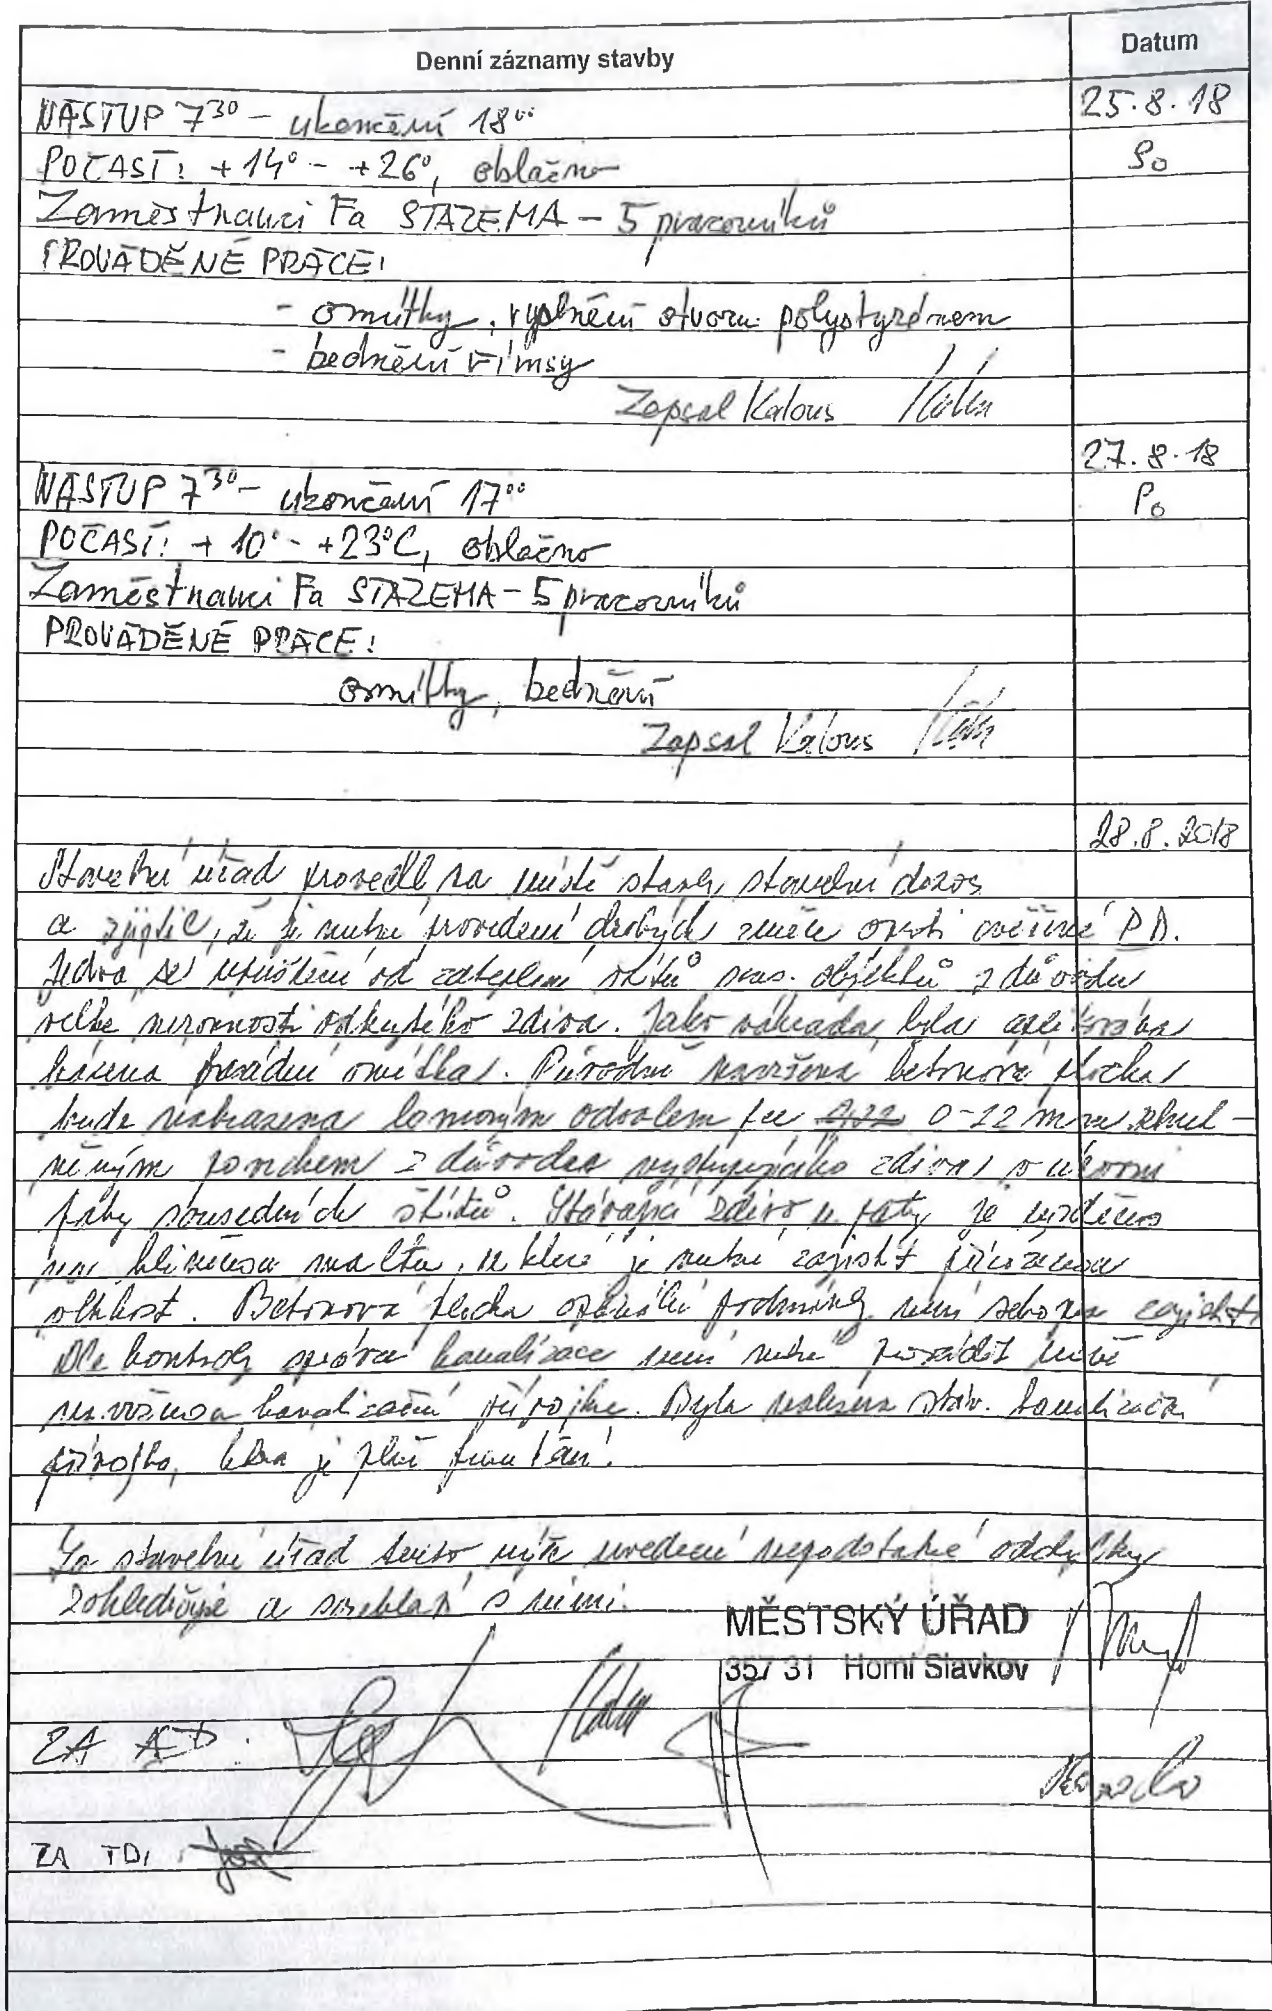 Denní záznamy stavby
Datum
NÁSTUP 7³⁰ - ukončení 18⁰⁰
25.8.18
POČASÍ: +14° - +26°, oblačno
So
Zaměstnanci Fa STAZEMA - 5 pracovníků
PROVÁDĚNÉ PRÁCE:
- omítky, vyplnění otvoru polystyrénem
- bednění římsy
Zapsal Kalous
27.8.18
NÁSTUP 7³⁰ - ukončení 17⁰⁰
Po
POČASÍ: +10° - +23°C, oblačno
Zaměstnanci Fa STAZEMA - 5 pracovníků
PROVÁDĚNÉ PRÁCE:
omítky, bednění
Zapsal Kalous
28.8.2018
Stavební úřad provedl na místě stavby stavební dozor
a zjistil, že je nutné provedení drobných změn oproti ověřené PD.
Jedná se upuštění od zateplení štítů sous. objektů z důvodu
velké nerovnosti odkrytého zdiva. Jako náhrada byla aplikována
fasádní omítka. Původně navržená betonová plocha
bude nahrazena lomovým odvalem 0-22 mm zhut-
něným povrchem z důvodu vystupujícího zdiva v úrovni
paty sousedních štítů. Stávající zdivo u paty je vyzděno
na maltu, u které je nutné zajistit přirozenou
vlhkost. Betonová plocha podmínky není schopna zajistit.
Dle kontroly správce kanalizace není nutné nově
navrženou kanalizační přípojku. Byla nalezena stáv. kanalizační
přípojka, která je plně funkční.
Za stavební úřad tímto výše uvedené nepodstatné odchylky
zohledňuje a souhlasí s nimi.
MĚSTSKÝ ÚŘAD
357 31 Horní Slavkov
ZA AD:
ZA TDI